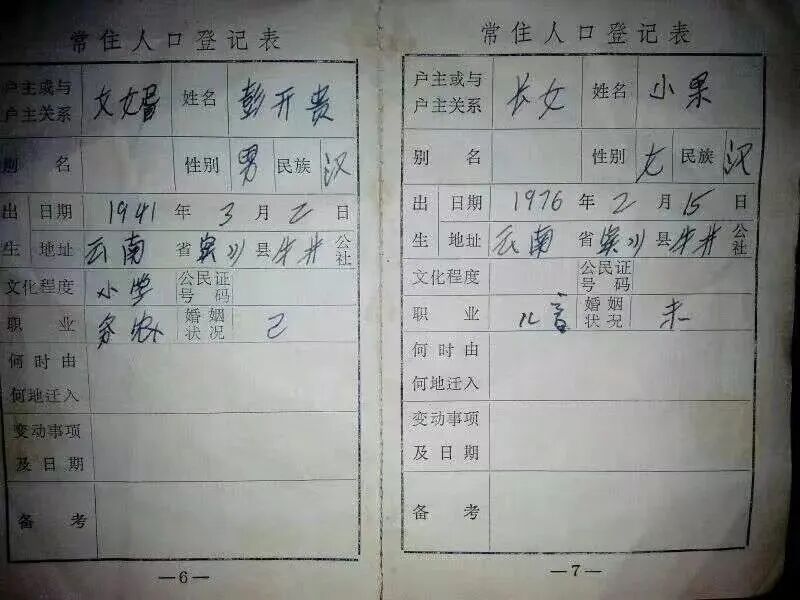 常住人口登记表
户主或与户主关系 女婿 姓名 彭开贵
别名 性别 男 民族 汉
出生 日期 1941年3月2日
地址 云南省宾川县牛井公社
文化程度 小学 公民证号码
职业 务农 婚姻状况 已
何时由何地迁入
变动事项及日期
备考
—6—
常住人口登记表
户主或与户主关系 长女 姓名 小果
别名 性别 女 民族 汉
出生 日期 1976年2月15日
地址 云南省宾川县牛井公社
文化程度 公民证号码
职业 儿童 婚姻状况 未
何时由何地迁入
变动事项及日期
备考
—7—